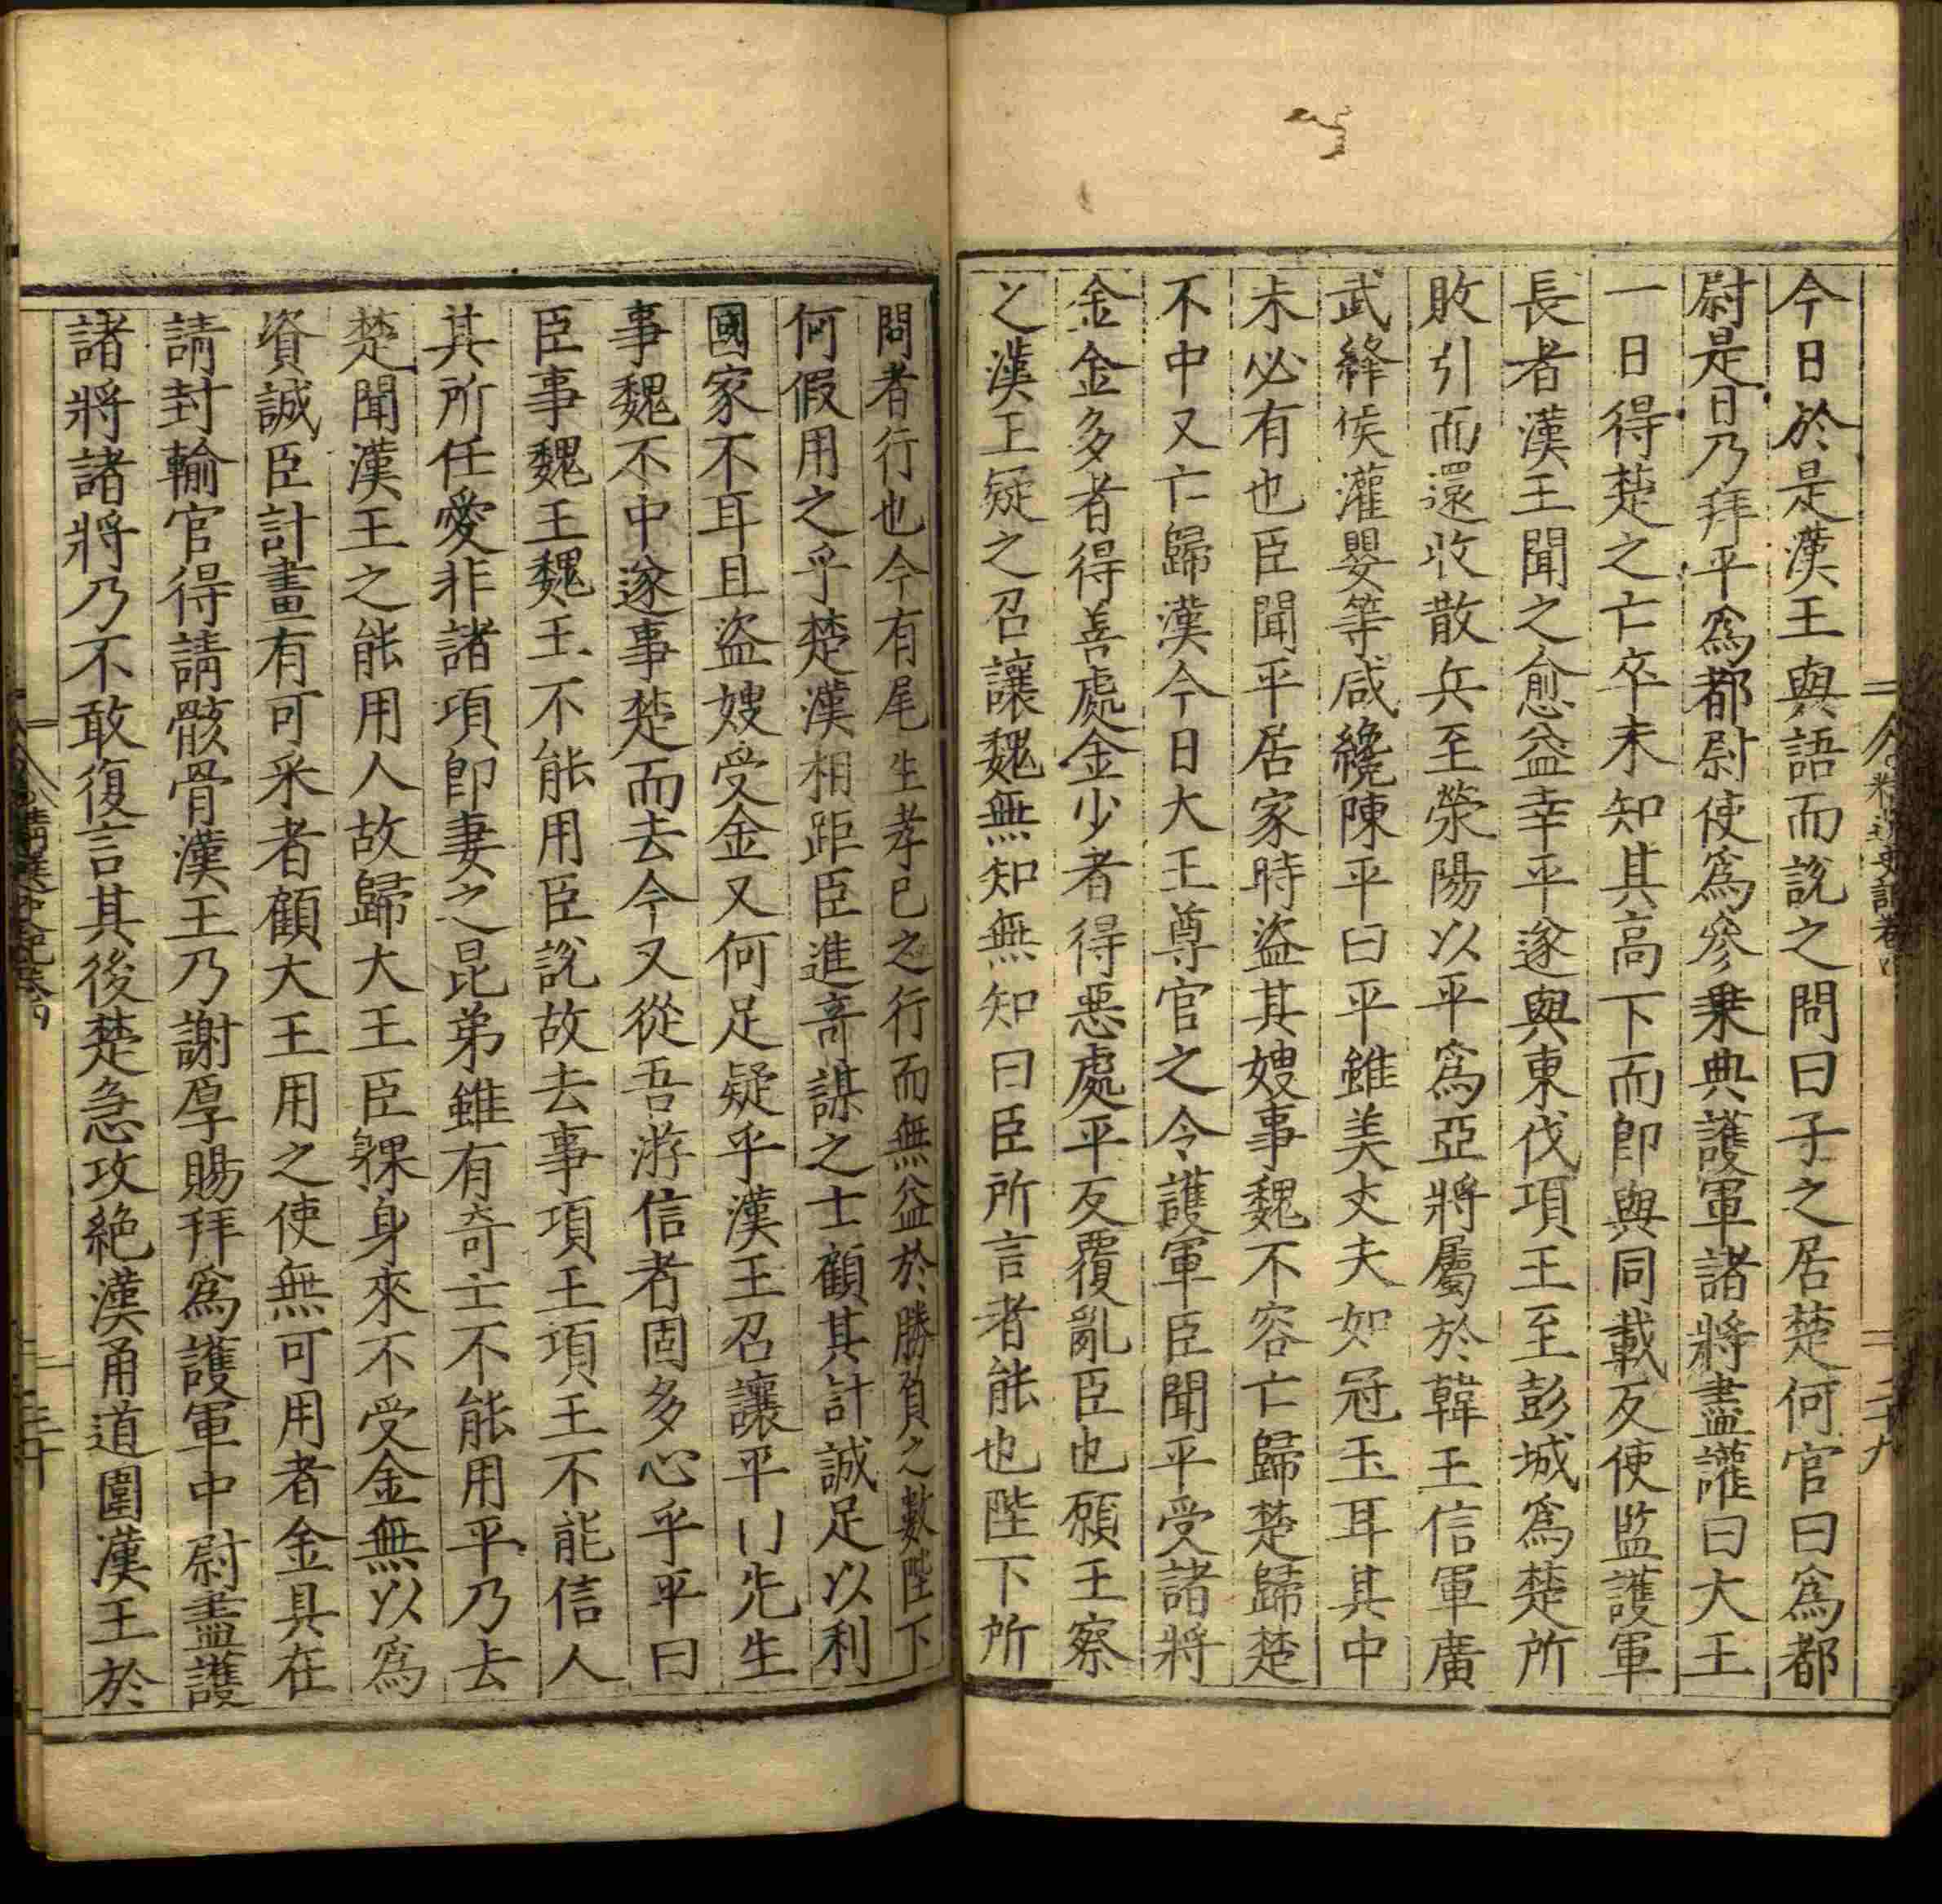 今日於是漢王與語而說之問曰子之居楚何官曰爲都
尉是日乃拜平爲都尉使爲參乗典護軍諸將盡讙曰大王
一日得楚之亡卒未知其高下而卽與同載反使監護軍
長者漢王聞之愈益幸平遂與東伐項王至彭城爲楚所
敗引而還收散兵至滎陽以平爲亞將屬於韓王信軍廣
武絳侯灌嬰等咸纔陳平曰平雖美丈夫如冠玉耳其中
未必有也臣聞平居家時盜其嫂事魏不容亡歸楚歸楚
不中又亡歸漢今日大王尊官之令護軍臣聞平受諸將
金金多者得善處金少者得惡處平反覆亂臣也願王察
之漢王疑之召讓魏無知無知曰臣所言者能也陛下所
問者行也今有尾生孝已之行而無益於勝負之數陛下
何假用之乎楚漢相距臣進奇謀之士顧其計誠足以利
國家不耳且盜嫂受金又何足疑乎漢王召讓平曰先生
事魏不中遂事楚而去今又從吾游信者固多心乎平曰
臣事魏王魏王不能用臣說故去事項王項王不能信人
其所任愛非諸項卽妻之昆弟雖有奇士不能用平乃去
楚聞漢王之能用人故歸大王臣躶身來不受金無以爲
資誠臣計畫有可采者顧大王用之使無可用者金具在
請封輸官得請骸骨漢王乃謝厚賜拜爲護軍中尉盡護
諸將諸將乃不敢復言其後楚急攻絶漢甬道圍漢王於
二十九
三十